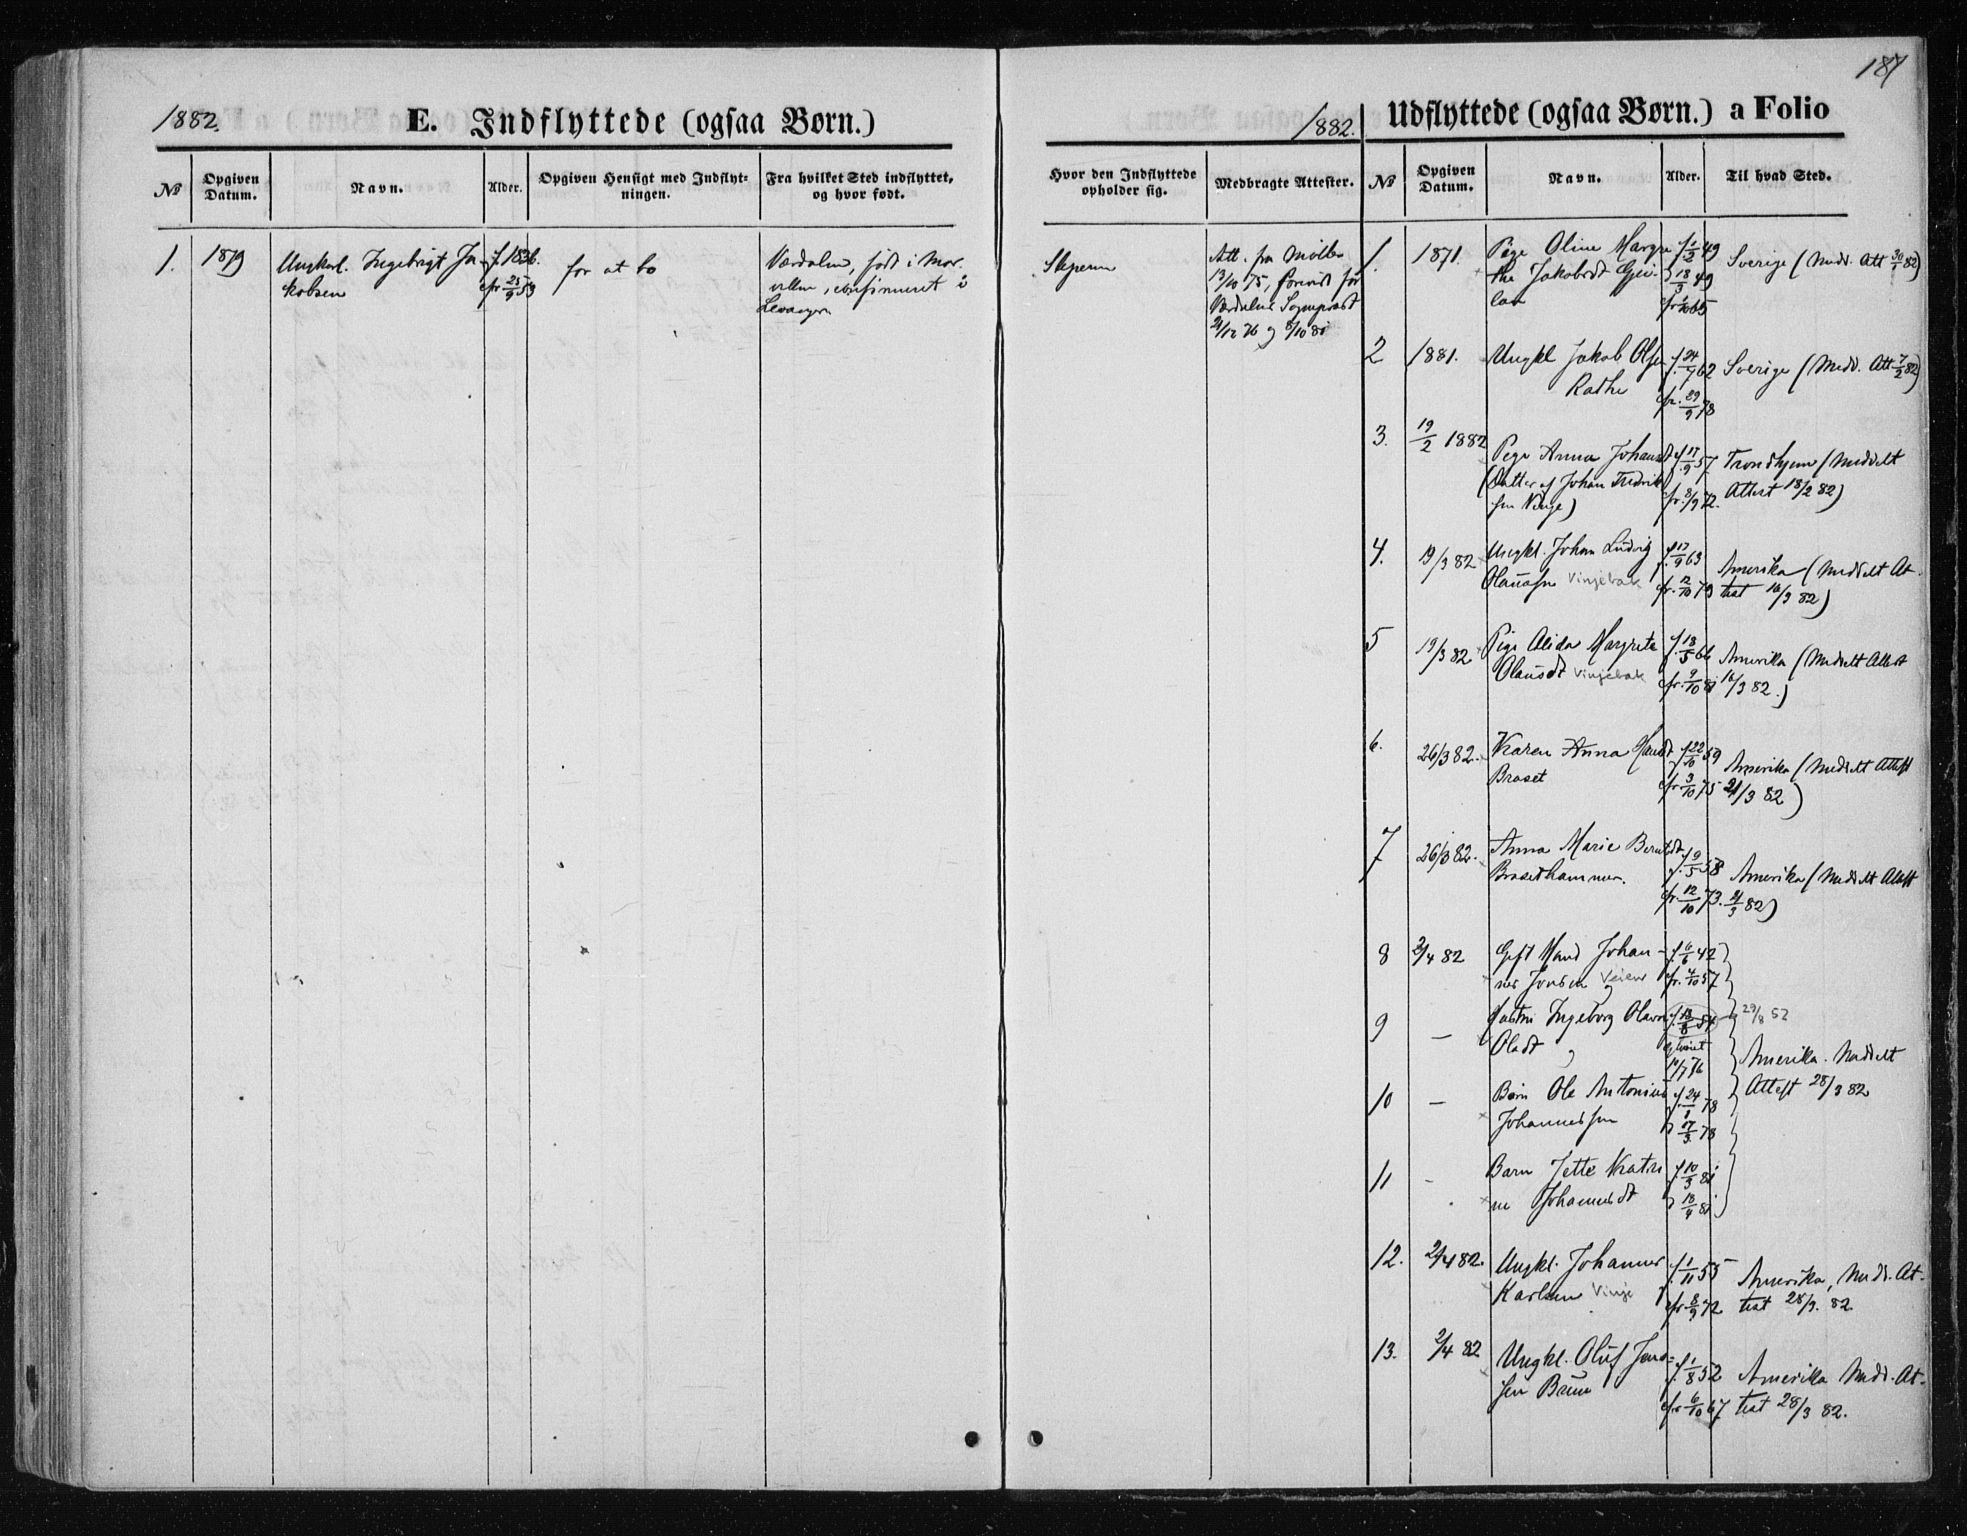 187
1882.
E. Indflyttede (ogsaa Børn.)
No
Opgiven Datum.
Navn.
Alder.
Opgiven Hensigt med Indflyt-
ningen.
Fra hvilket Sted indflyttet,
og hvor født.
1. 1879 Ungkarl. Ingebrigt Ja- f. 1836. for at bo Værdalen, født i Mar-
kobsen cfr 25/9 53 confirmeret i
Levanger
1882.
Udflyttede (ogsaa Børn.) a Folio
Hvor den Indflyttede
opholder sig.
Medbragte Attester.
No
Opgiven
Datum.
Navn.
Alder.
Til hvad Sted.
Att. fra
13/10 75, for
Værdalens Sogneprest
21/12 76 og 8/10 81
1. 1871. Pige Oline Margre f. 1/2 49 Sverige (Medd. Att 30/1 82)
the Jakobsdt 18/3 49
2 1881. Ungkl Jakob Olsen f. 24/7 62 Sverige (Medd. Att 7/2 82)
cfr. 29/9 78
3. 19/2 1882 Pige Anna Johansdt f. 17/9 57 Trondhjem (Meddelt
(Datter af Johan Fredrik cfr. 8/9 72. Attest 18/2 82)
sen Vinge)
4. 19/3 82 Ungkl. Johan Ludvig f. 17/9 63 Amerika (Meddelt At-
Olausen Vinjebak cfr. 12/10 79 test 16/3 82)
5 19/3 82 Pige Alida Margrete f. 18/5 66 Amerika (Meddelt Attest
Olausdt Vinjebak cfr. 9/10 81 16/3 82.)
6. 26/3 82. Karen Anna f. 22/10 59 Amerika (Meddelt Attest
Braset cfr. 3/10 75 21/3 82)
7 26/3 82. Anna Marie Berntsdt f. 9/5 58 Amerika (Meddelt Attest
Brasethammer. cfr. 12/10 73. 21/3 82)
8 2/4 82 Gift Mand Johan- f. 6/6 42
nes Jonsen Veien cfr. 4/10 57
og
9 — Hustru Ingeborg f. 18/8 54 29/8 52
Olsdt og viet
10/7 76 Amerika. Meddelt
Attest 28/3 82
10 — Barn Ole Antonius f. 24/1 78
Johannessen 17/3 78
11 - Barn Jette Katri f. 10/3 81
ne Johannesdt 18/4 81
12. 2/4 82. Ungkl. Johannes f. 1/11 55 Amerika, Medd. At-
Karlsen Vinje cfr. 8/9 72 test 28/3. 82.
13. 2/4 82 Ungkl. Oluf Jens- f. 1/8 52 Amerika Medd. At-
sen Bruun cfr 6/10 67 test 28/3 82.